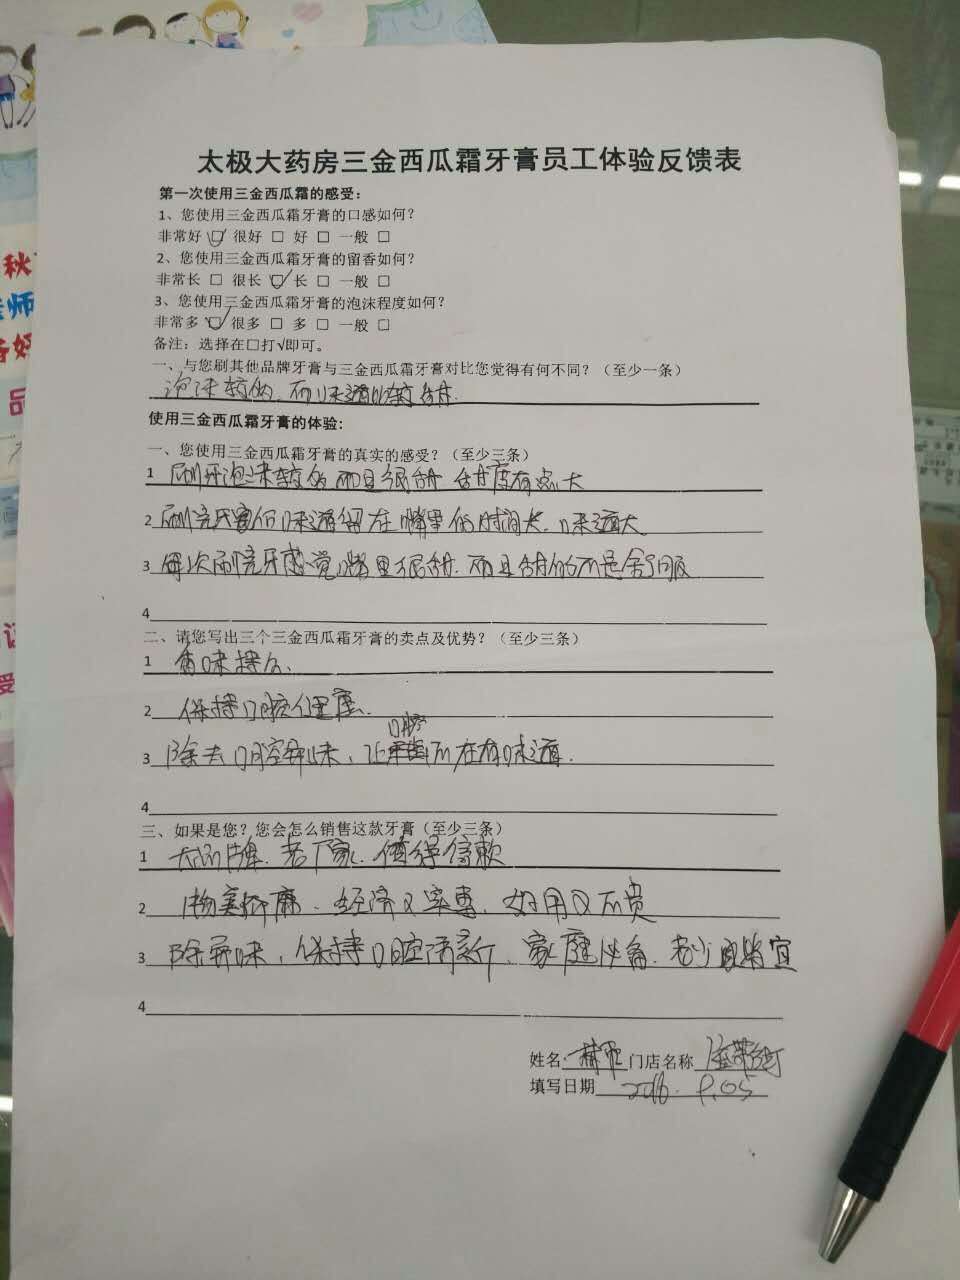 太极大药房三金西瓜霜牙膏员工体验反馈表
第一次使用三金西瓜霜的感受：
1、您使用三金西瓜霜牙膏的口感如何？
非常好 ☑ 很好 □ 好 □ 一般 □
2、您使用三金西瓜霜牙膏的留香如何？
非常长 □ 很长 ☑ 长 □ 一般 □
3、您使用三金西瓜霜牙膏的泡沫程度如何？
非常多 ☑ 很多 □ 多 □ 一般 □
备注：选择在□打√即可。
一、与您刷其他品牌牙膏与三金西瓜霜牙膏对比您觉得有何不同？（至少一条）
泡沫较多，而味道比较甜.
使用三金西瓜霜牙膏的体验：
一、您使用三金西瓜霜牙膏的真实的感受？（至少三条）
1 刷牙泡沫较多 而且很甜 甜度有点大
2 刷完牙 味道留在嘴里的时间长. 味道大
3 每次刷完牙感觉嘴里很甜. 而且甜的不是舒服
4
二、请您写出三个三金西瓜霜牙膏的卖点及优势？（至少三条）
1 香味持久.
2 保持口腔健康.
3 除去口腔异味，让口腔不在有味道.
4
三、如果是您？您会怎么销售这款牙膏（至少三条）
1 大品牌. 老厂家. 值得信赖
2 物美价廉. 经济又实惠. 好用又不贵
3 除异味，保持口腔清新、家庭必备. 老少皆宜
4
姓名: 门店名称
填写日期 2016.9.05